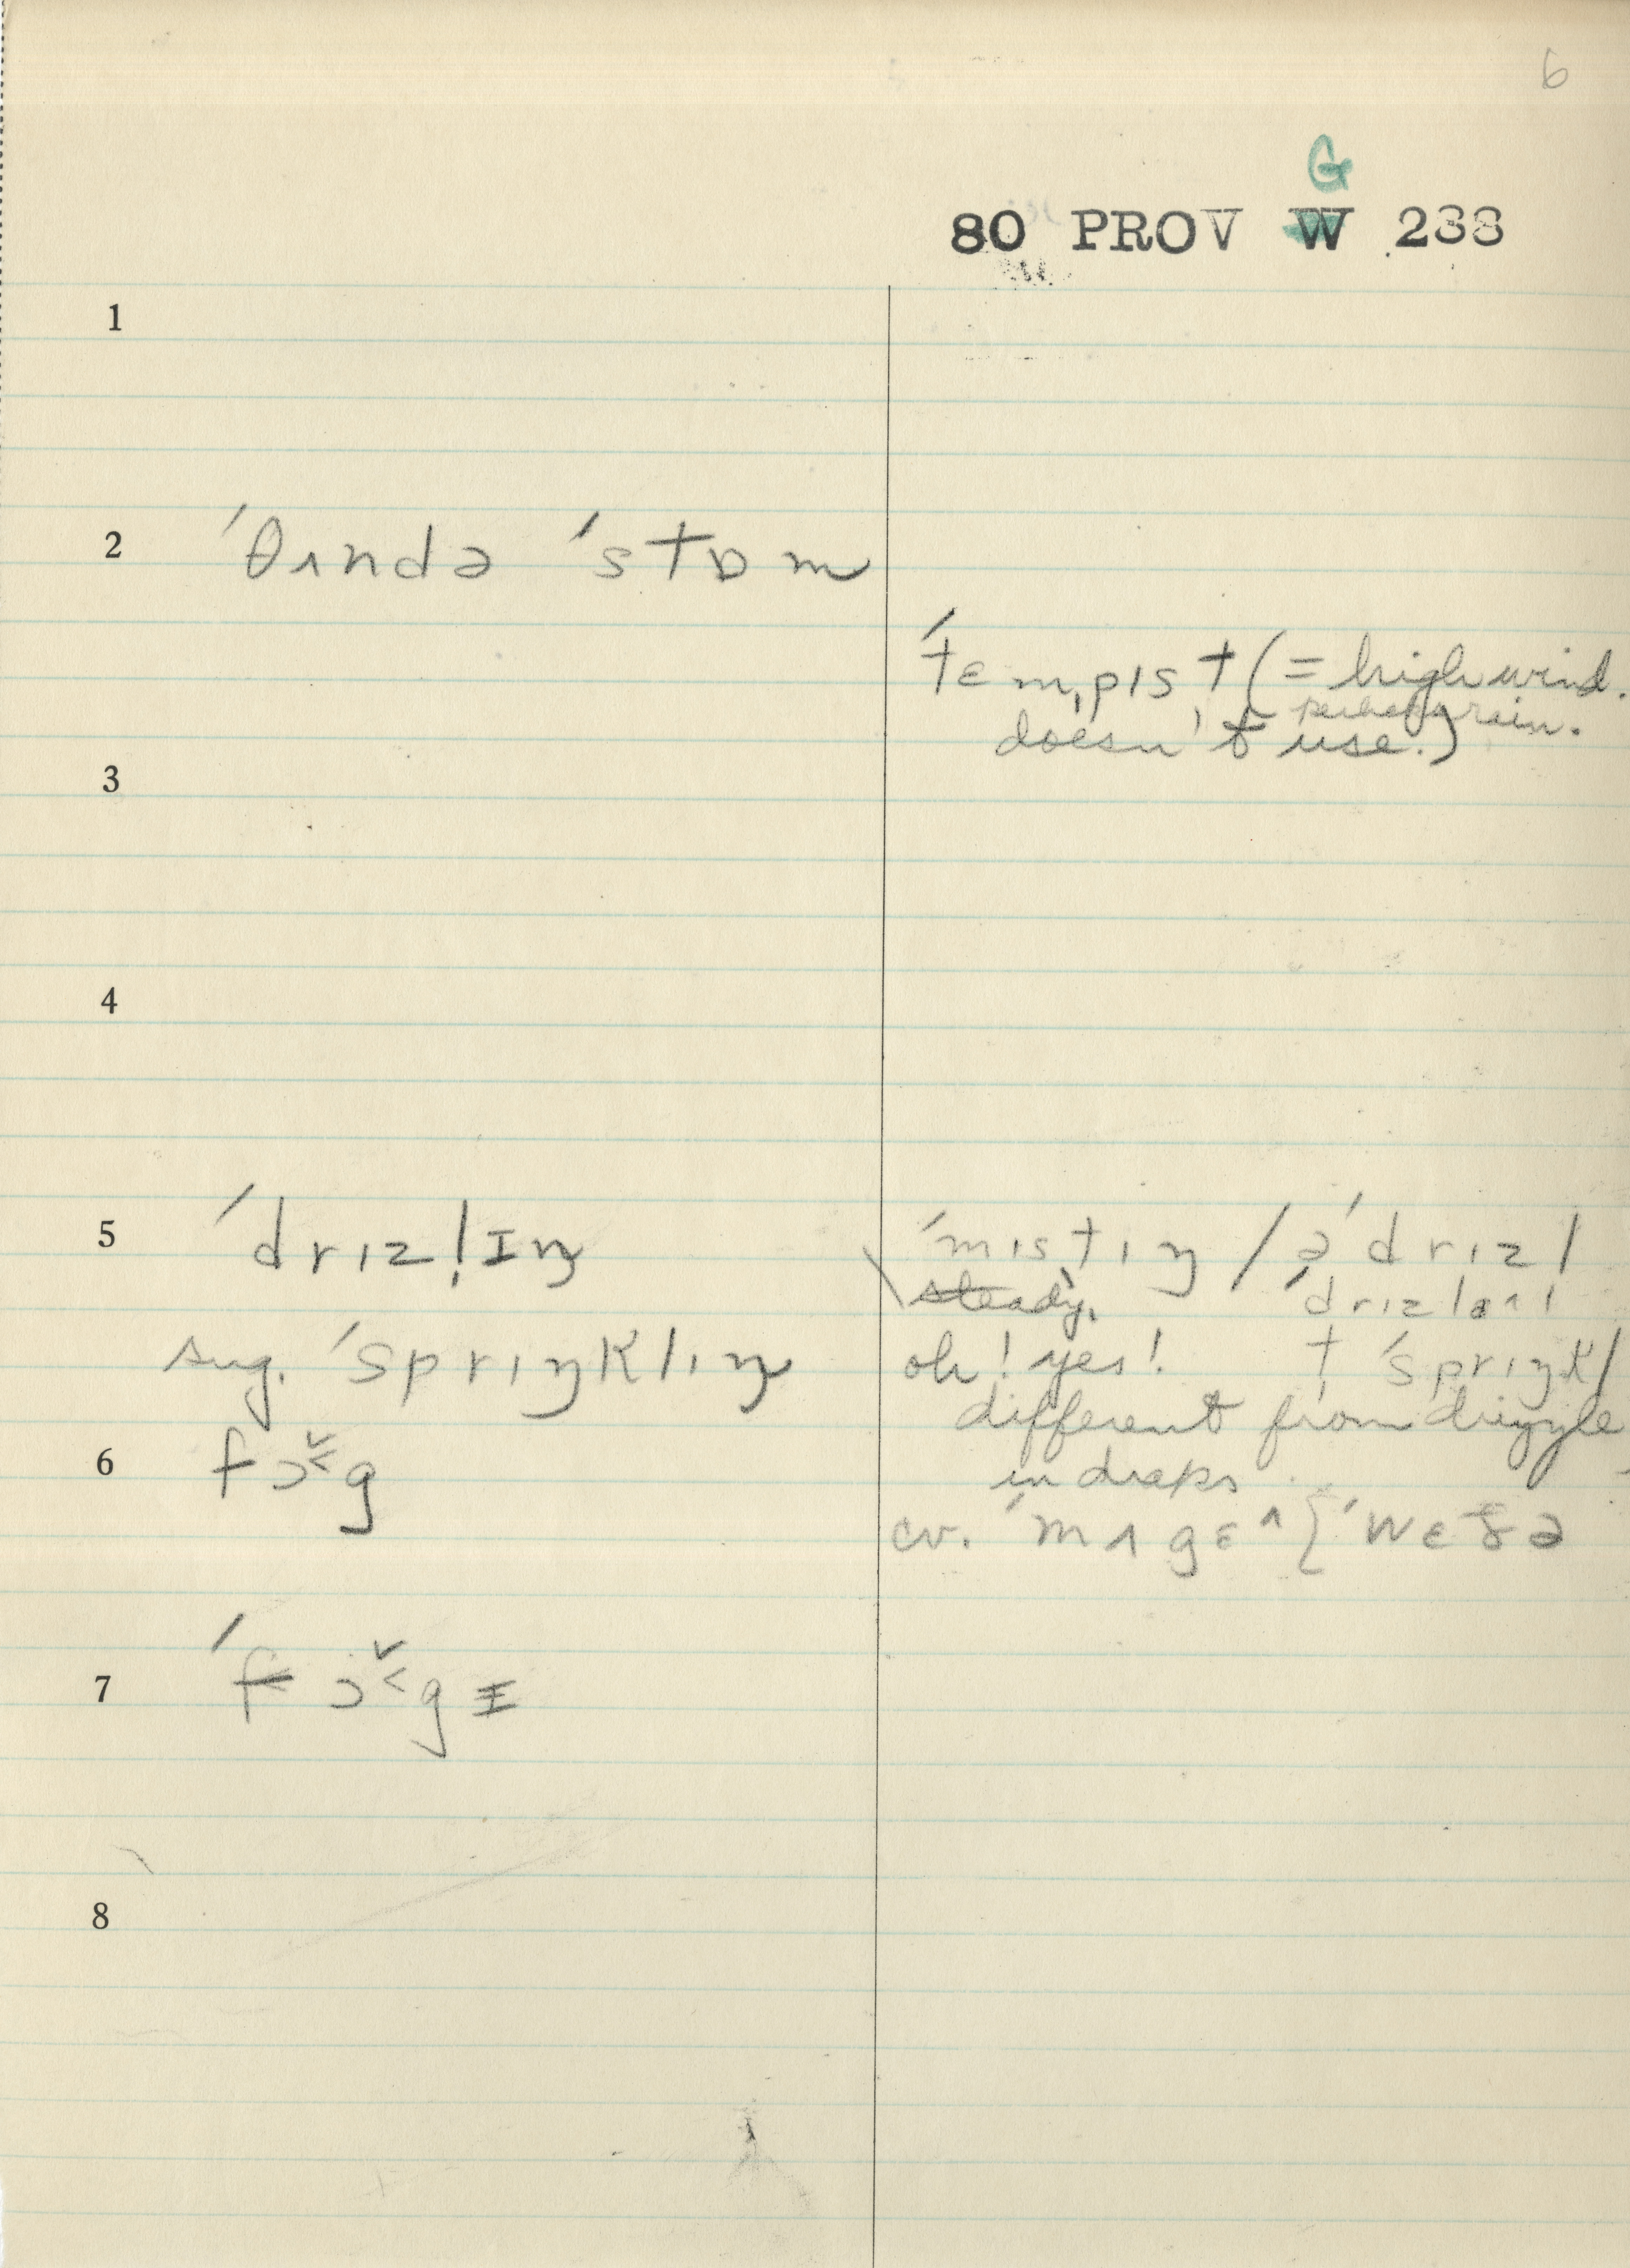 6
G
80 PROV W 238
1
2 ˈθʌndə ˈstɒm
ˈtɛmˌpɪst (= high wind.
perhaps rain.
doesn't use.)
3
4
5 ˈdrɪzl̩ɪŋ ˈmɪstɪŋ / ə ˈdrɪzl
steady.
sug. ˈsprɪŋklɪŋ oh! yes! † ˈsprɪŋkl
different from drizzle
6 fɔ˅˂g in drops
cv. ˈmʌgɛ^ { ˈwɛðə
7 ˈfɔ˅˂gɪ
8